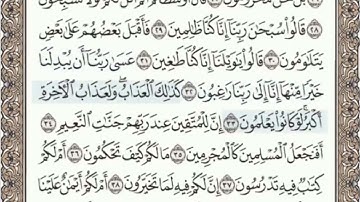 قَالُواْ سُبۡحَٰنَ رَبِّنَآ إِنَّا كُنَّا ظَٰلِمِينَ ٢٩ فَأَقۡبَلَ بَعۡضُهُمۡ عَلَىٰ بَعۡضٖ
يَتَلَٰوَمُونَ ٣٠ قَالُواْ يَٰوَيۡلَنَآ إِنَّا كُنَّا طَٰغِينَ ٣١ عَسَىٰ رَبُّنَآ أَن يُبۡدِلَنَا
خَيۡرٗا مِّنۡهَآ إِنَّآ إِلَىٰ رَبِّنَا رَٰغِبُونَ ٣٢ كَذَٰلِكَ ٱلۡعَذَابُۖ وَلَعَذَابُ ٱلۡأٓخِرَةِ
أَكۡبَرُۚ لَوۡ كَانُواْ يَعۡلَمُونَ ٣٣ إِنَّ لِلۡمُتَّقِينَ عِندَ رَبِّهِمۡ جَنَّٰتِ ٱلنَّعِيمِ ٣٤
أَفَنَجۡعَلُ ٱلۡمُسۡلِمِينَ كَٱلۡمُجۡرِمِينَ ٣٥ مَا لَكُمۡ كَيۡفَ تَحۡكُمُونَ ٣٦ أَمۡ لَكُمۡ
كِتَٰبٞ فِيهِ تَدۡرُسُونَ ٣٧ إِنَّ لَكُمۡ فِيهِ لَمَا تَخَيَّرُونَ ٣٨ أَمۡ لَكُمۡ أَيۡمَٰنٌ عَلَيۡنَا